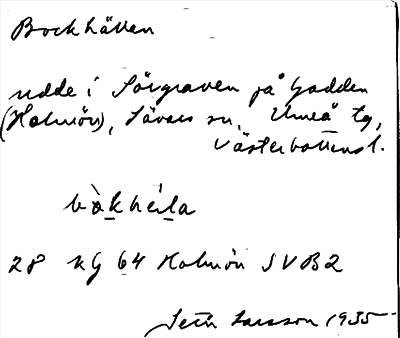 Bockhällan
udde i Sörgraven på Gadden
(Holmön), Sävars sn, Umeå tg,
Västerbottens l.
28 kg 64 Holmön SVB2
Seth Larsson 1935